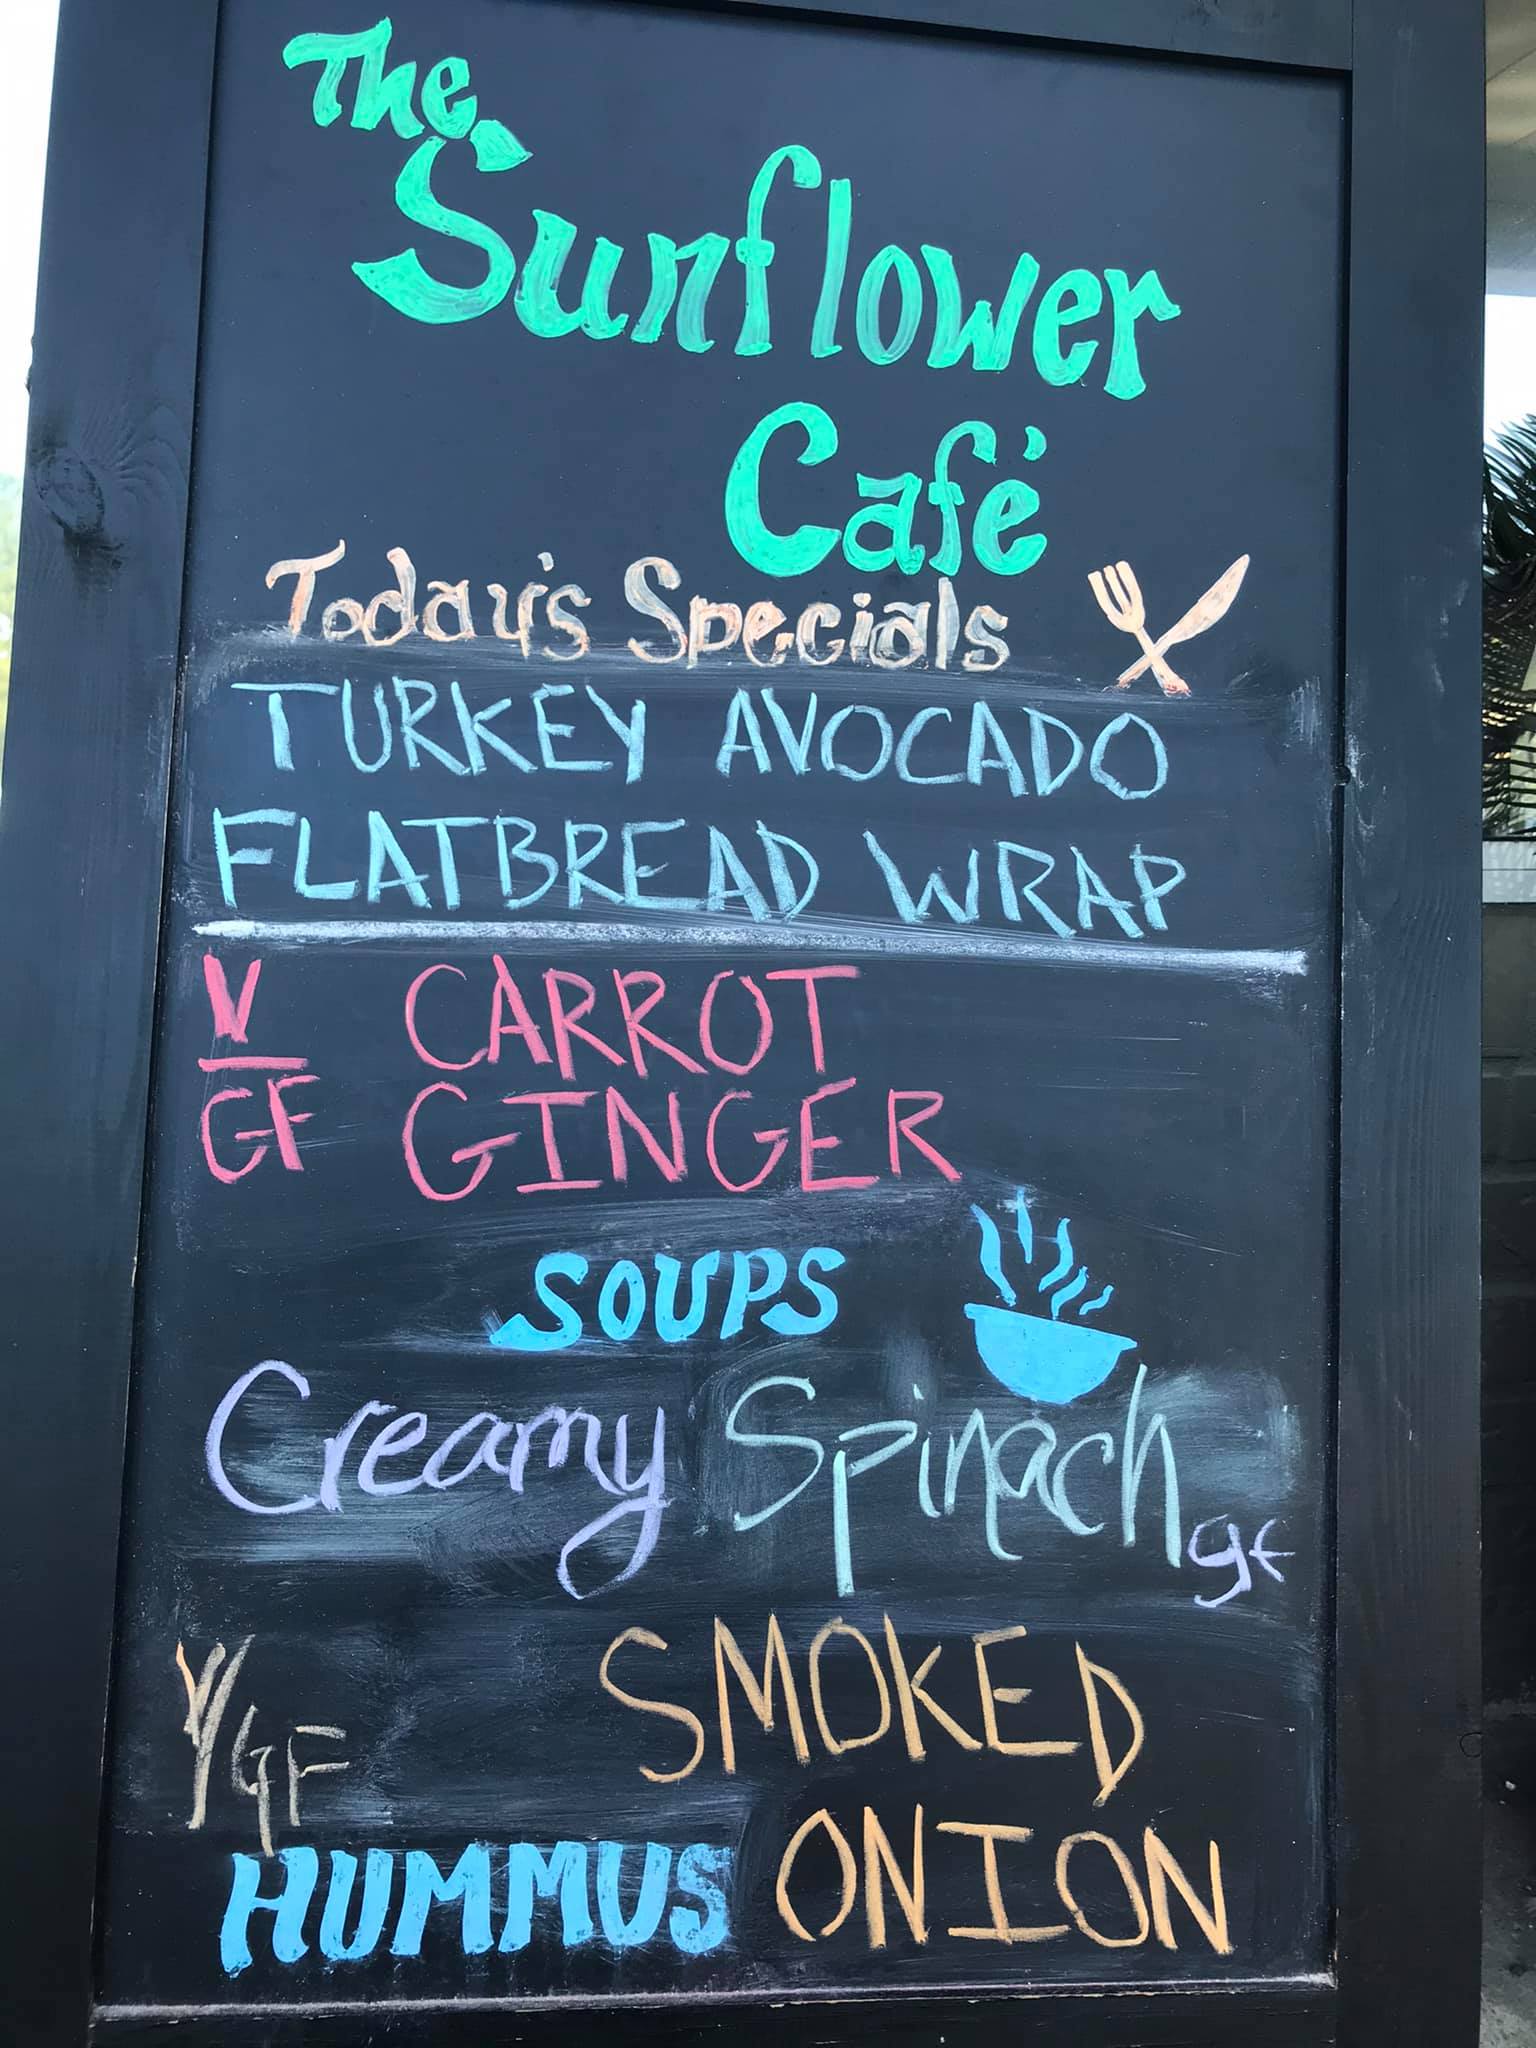 The
Sunflower
Café
Today's Specials
TURKEY AVOCADO
FLATBREAD WRAP
V CARROT
GF GINGER
SOUPS
Creamy Spinach gf
V/GF SMOKED
HUMMUS ONION